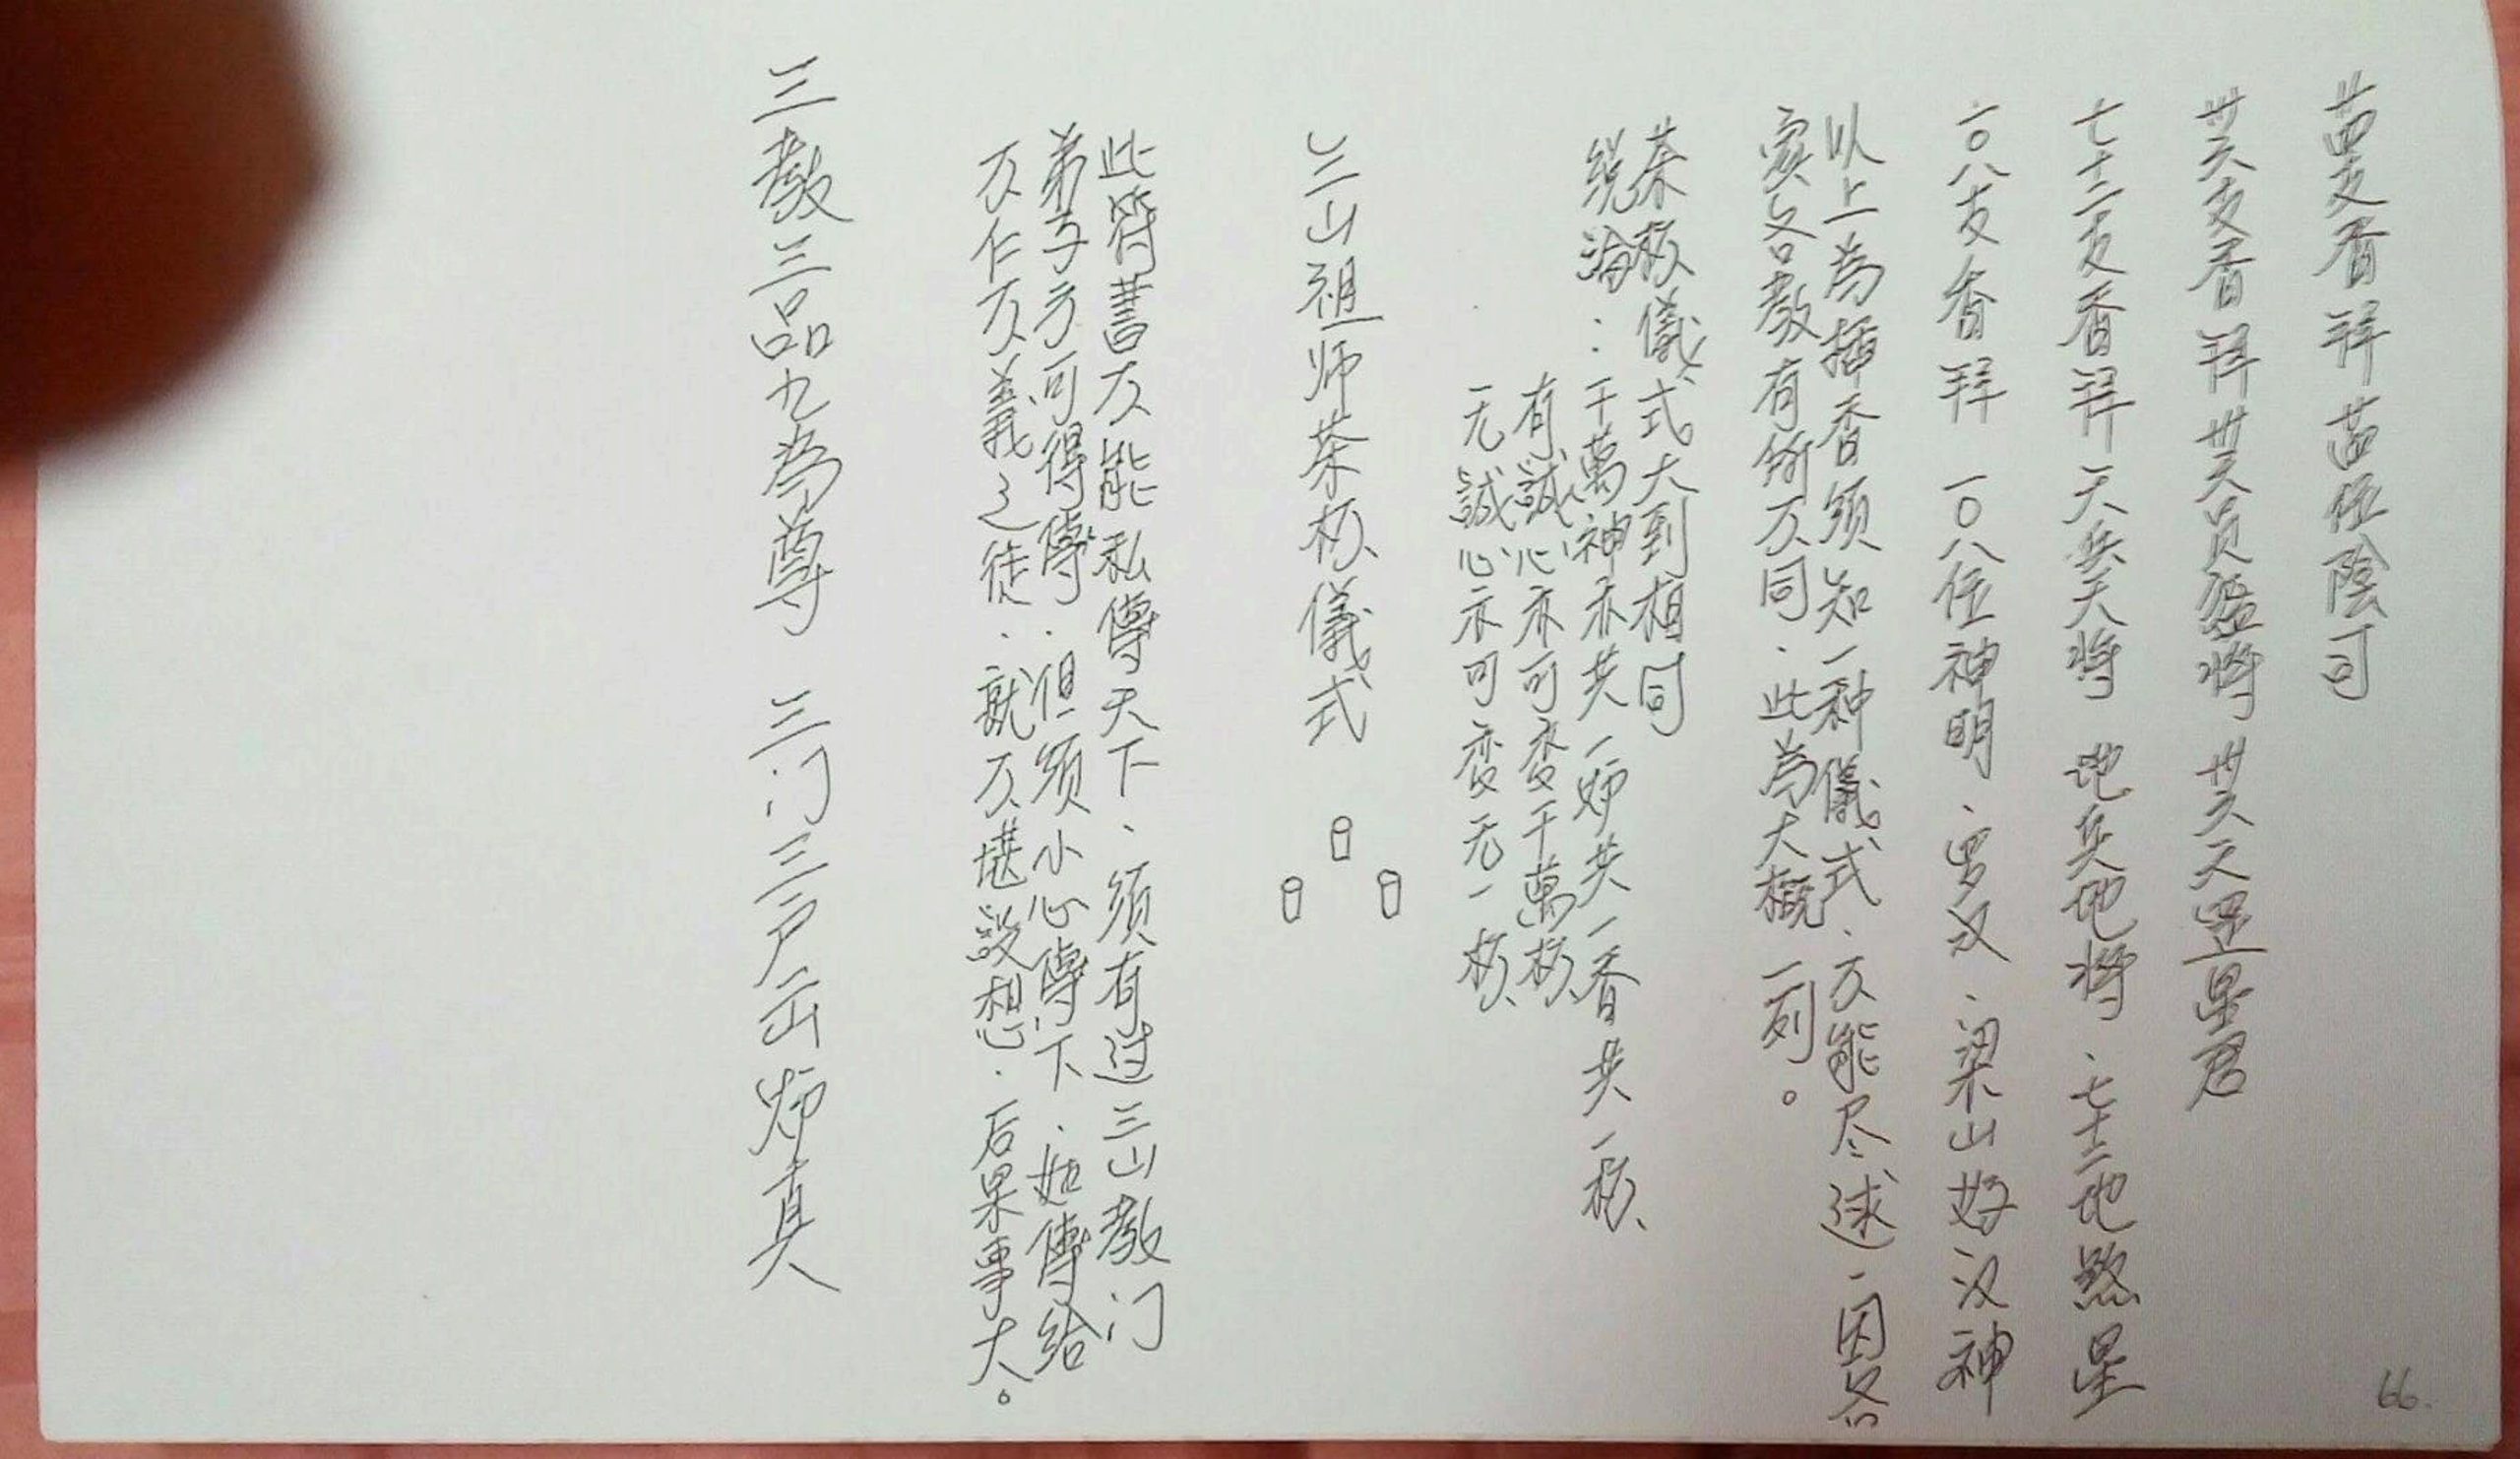 廿四支香拜廿四位陰司
卅六支香拜卅六员猛将 卅六天罡星君
七十二支香拜天兵天将 地兵地将、七十二地煞星
一0八支香拜 一0八位神明、罗汉、梁山好汉神
以上為插香须知一种儀式、不能尽述、因各
家各教有所不同、此為大概一列。
茶杯儀式大到相同
统论:千萬神亦共一炉共一香共一杯
有誠心亦可变千萬杯
无誠心亦可变无一杯
三山祖师茶杯儀式
此符書不能私傳天下、须有过三山教门
弟子方可得傳、但须小心傳下、如傳给
不仁不義之徒、就不堪設想、后果事大。
三教三品九為尊 三门三户出炉真
66.